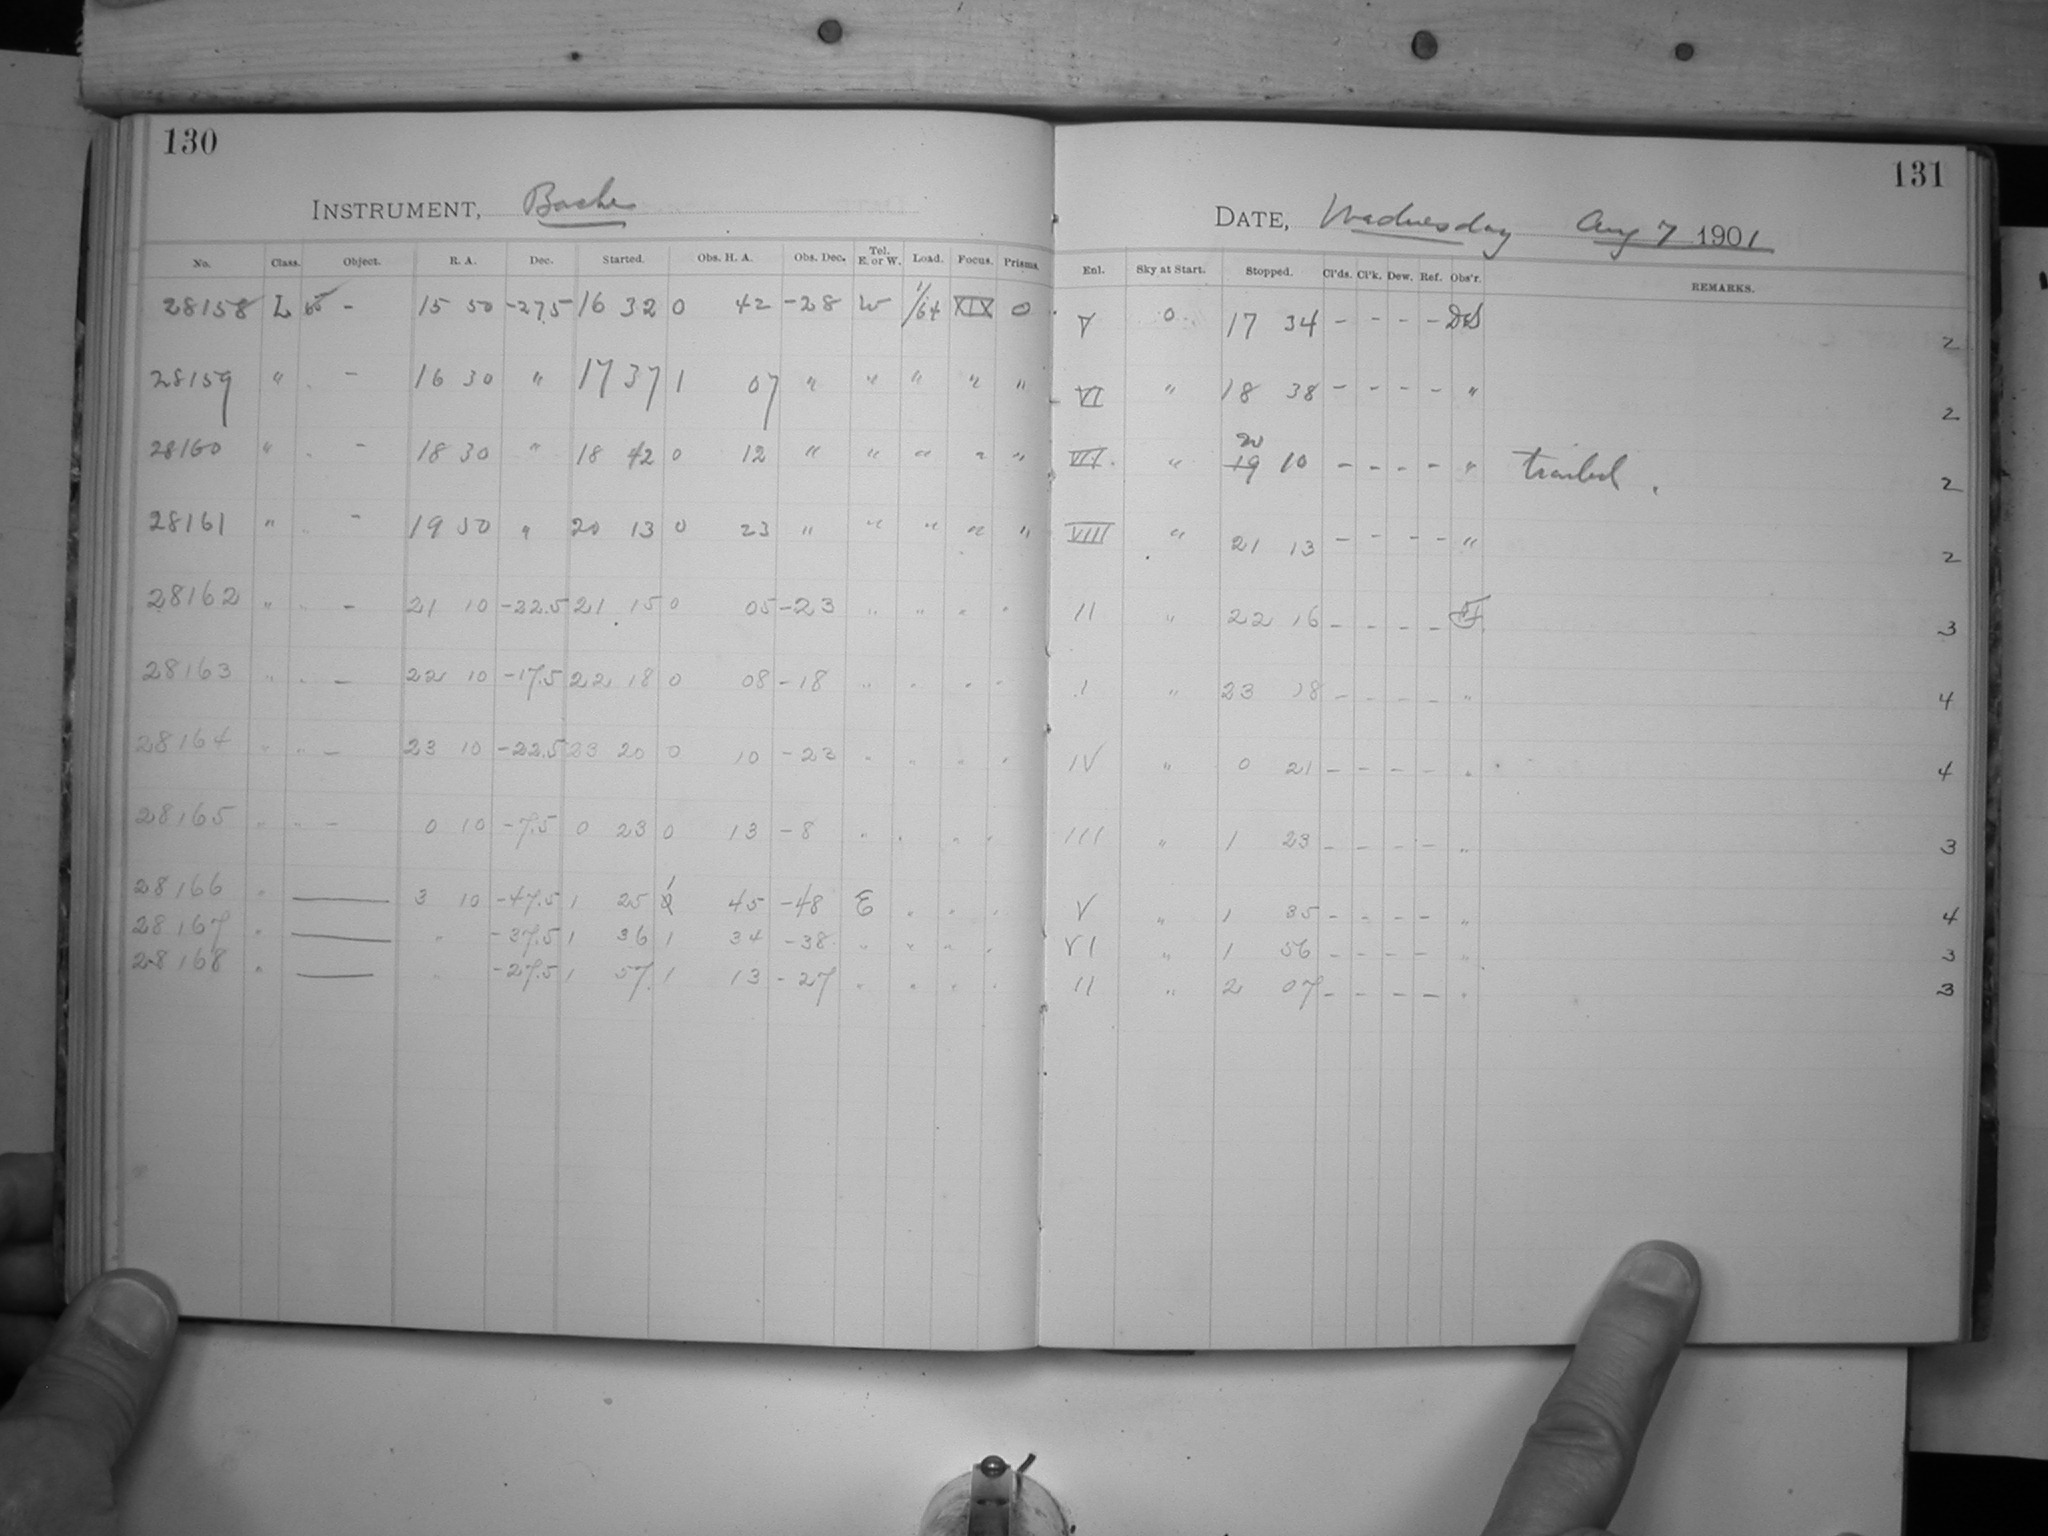 130
INSTRUMENT, Bache
No. Class. Object. R. A. Dec. Started. Obs. H. A. Obs. Dec. Tel. E. or W. Load. Focus. Prisms.
28158 L - 15 50 -27.5 16 32 0 42 -28 W 1/64 XIX 0
28159 " - 16 30 " 17 37 1 07 " " " " "
28160 " - 18 30 " 18 42 0 12 " " " " "
28161 " - 19 50 " 20 13 0 23 " " " " "
28162 " " - 21 10 -22.5 21 15 0 05 -23 " " " "
28163 " " - 22 10 -17.5 22 18 0 08 -18 " " " "
28164 " " - 23 10 -22.5 23 20 0 10 -23 " " " "
28165 " " - 0 10 -7.5 0 23 0 13 -8 " " " "
28166 " — 3 10 -47.5 1 25 1 45 -48 E " " "
28167 " — " -37.5 1 36 1 34 -38 " " " "
28168 " — " -27.5 1 57 1 13 -27 " " " "
131
DATE, Wednesday Aug 7 1901
Enl. Sky at Start. Stopped. Cl'ds. Cl'k. Dew. Ref. Obs'r. REMARKS.
V 0 17 34 - - - - 2
VI " 18 38 - - - - " 2
VII " 20 19 10 - - - - " trailed. 2
VIII " 21 13 - - - - " 2
II " 22 16 - - - - 3
I " 23 18 - - - - " 4
IV " 0 21 - - - - " 4
III " 1 23 - - - - " 3
V " 1 35 - - - - " 4
VI " 1 56 - - - - " 3
II " 2 07 - - - - " 3